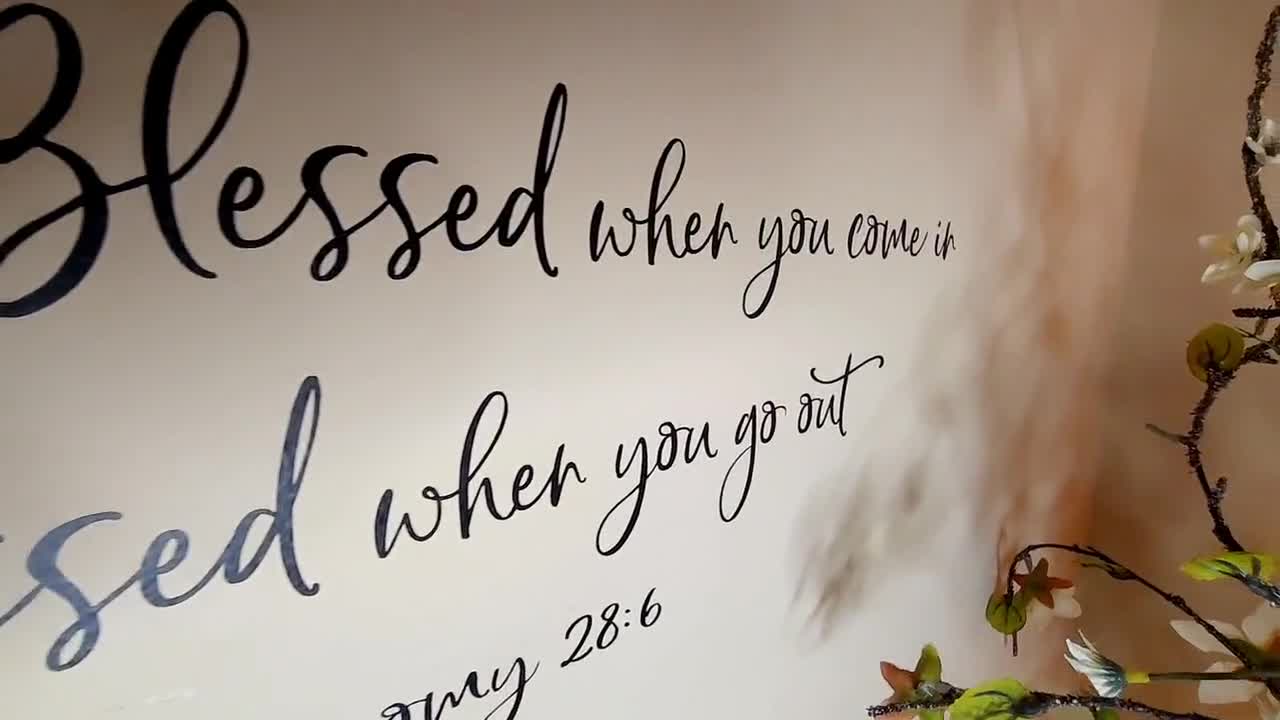 Blessed when you come in
ssed when you go out
omy 28:6